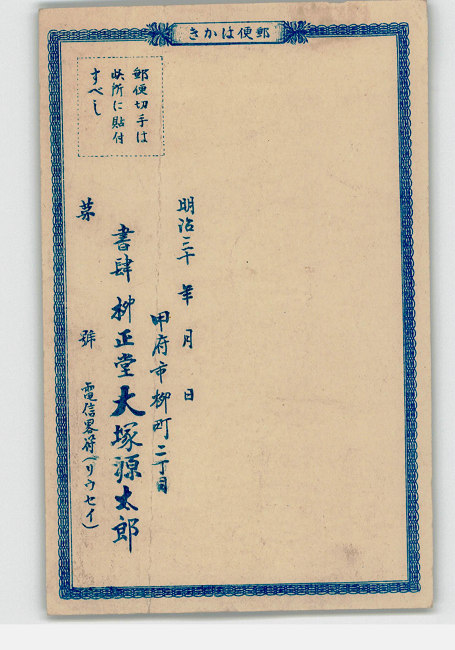 郵便はかき
郵便切手は
此所に貼付
すべし
明治三十 年 月 日
甲府市柳町二丁目
書肆 柳正堂 大塚源太郎
第 號 電信畧符(リウセイ)